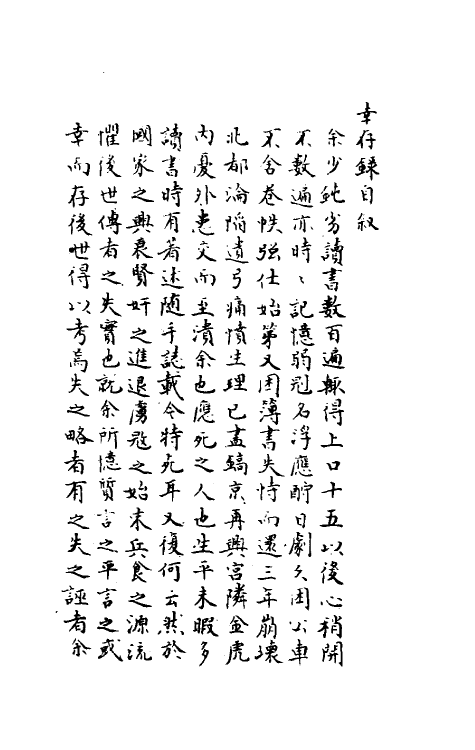 幸存錄自叙
余少純劣讀書數百遍輙得上口十五以後心稍開
不數遍亦時〻記憶弱冠名浮應酧日劇久困公車
不舍卷帙強仕始第又困簿書失恃而還三年崩壞
北都淪陷遺弓痛憤生理已盡鎬京再興宫隣金虎
内憂外患交而至潰余也應死之人也生平未暇多
讀書時有著述随手誌載今特死耳又復何云然於
國家之興衰賢奸之進退虜冦之始末兵食之源流
懼後世傳者之失實也就余所憶質言之平言之或
幸而存後世得以考焉失之略者有之失之誣者余